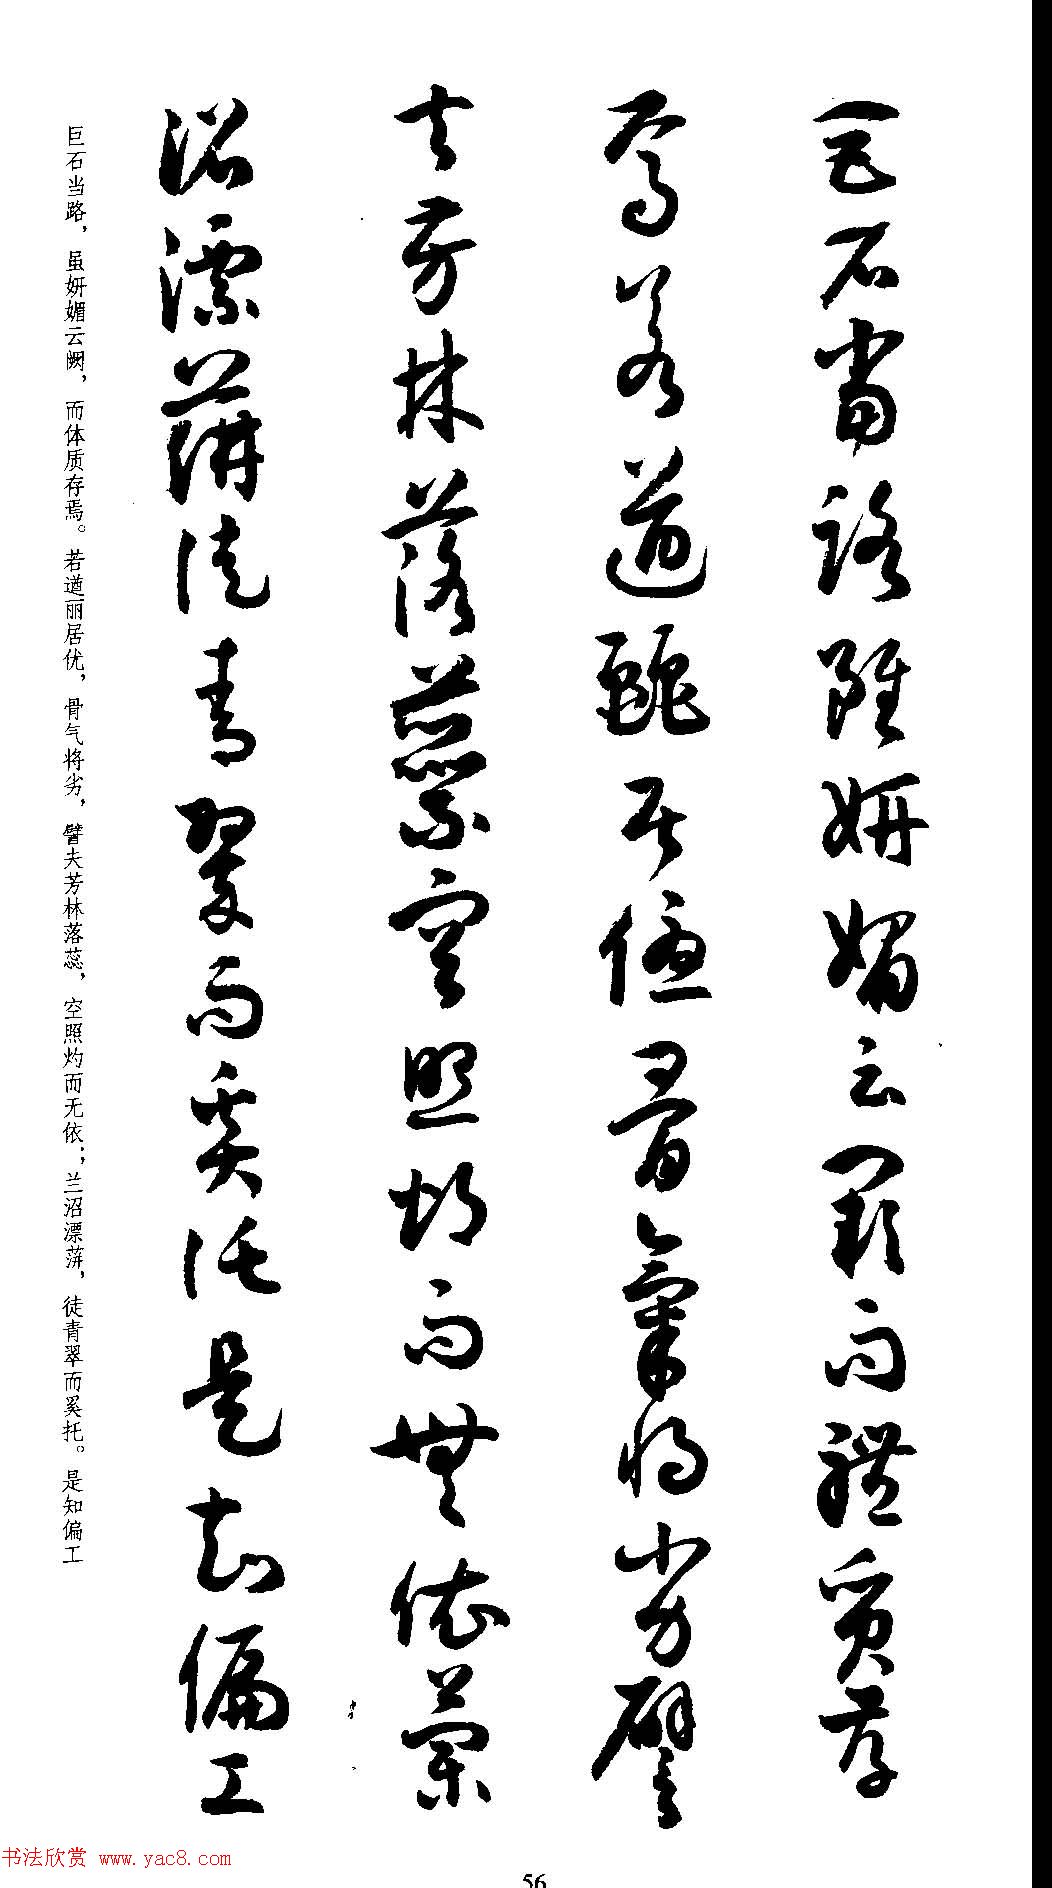 巨石當路雖妍媚云闕而體質存
焉若遒麗居優骨氣將劣譬
夫芳林落蘂空照灼而無依蘭
沼漂蓱徒青翠而奚托是知偏工
巨石当路，虽妍媚云阙，而体质存焉。若遒丽居优，骨气将劣，譬夫芳林落蕊，空照灼而无依；兰沼漂蓱，徒青翠而奚托。是知偏工
书法欣赏 www.yac8.com
56